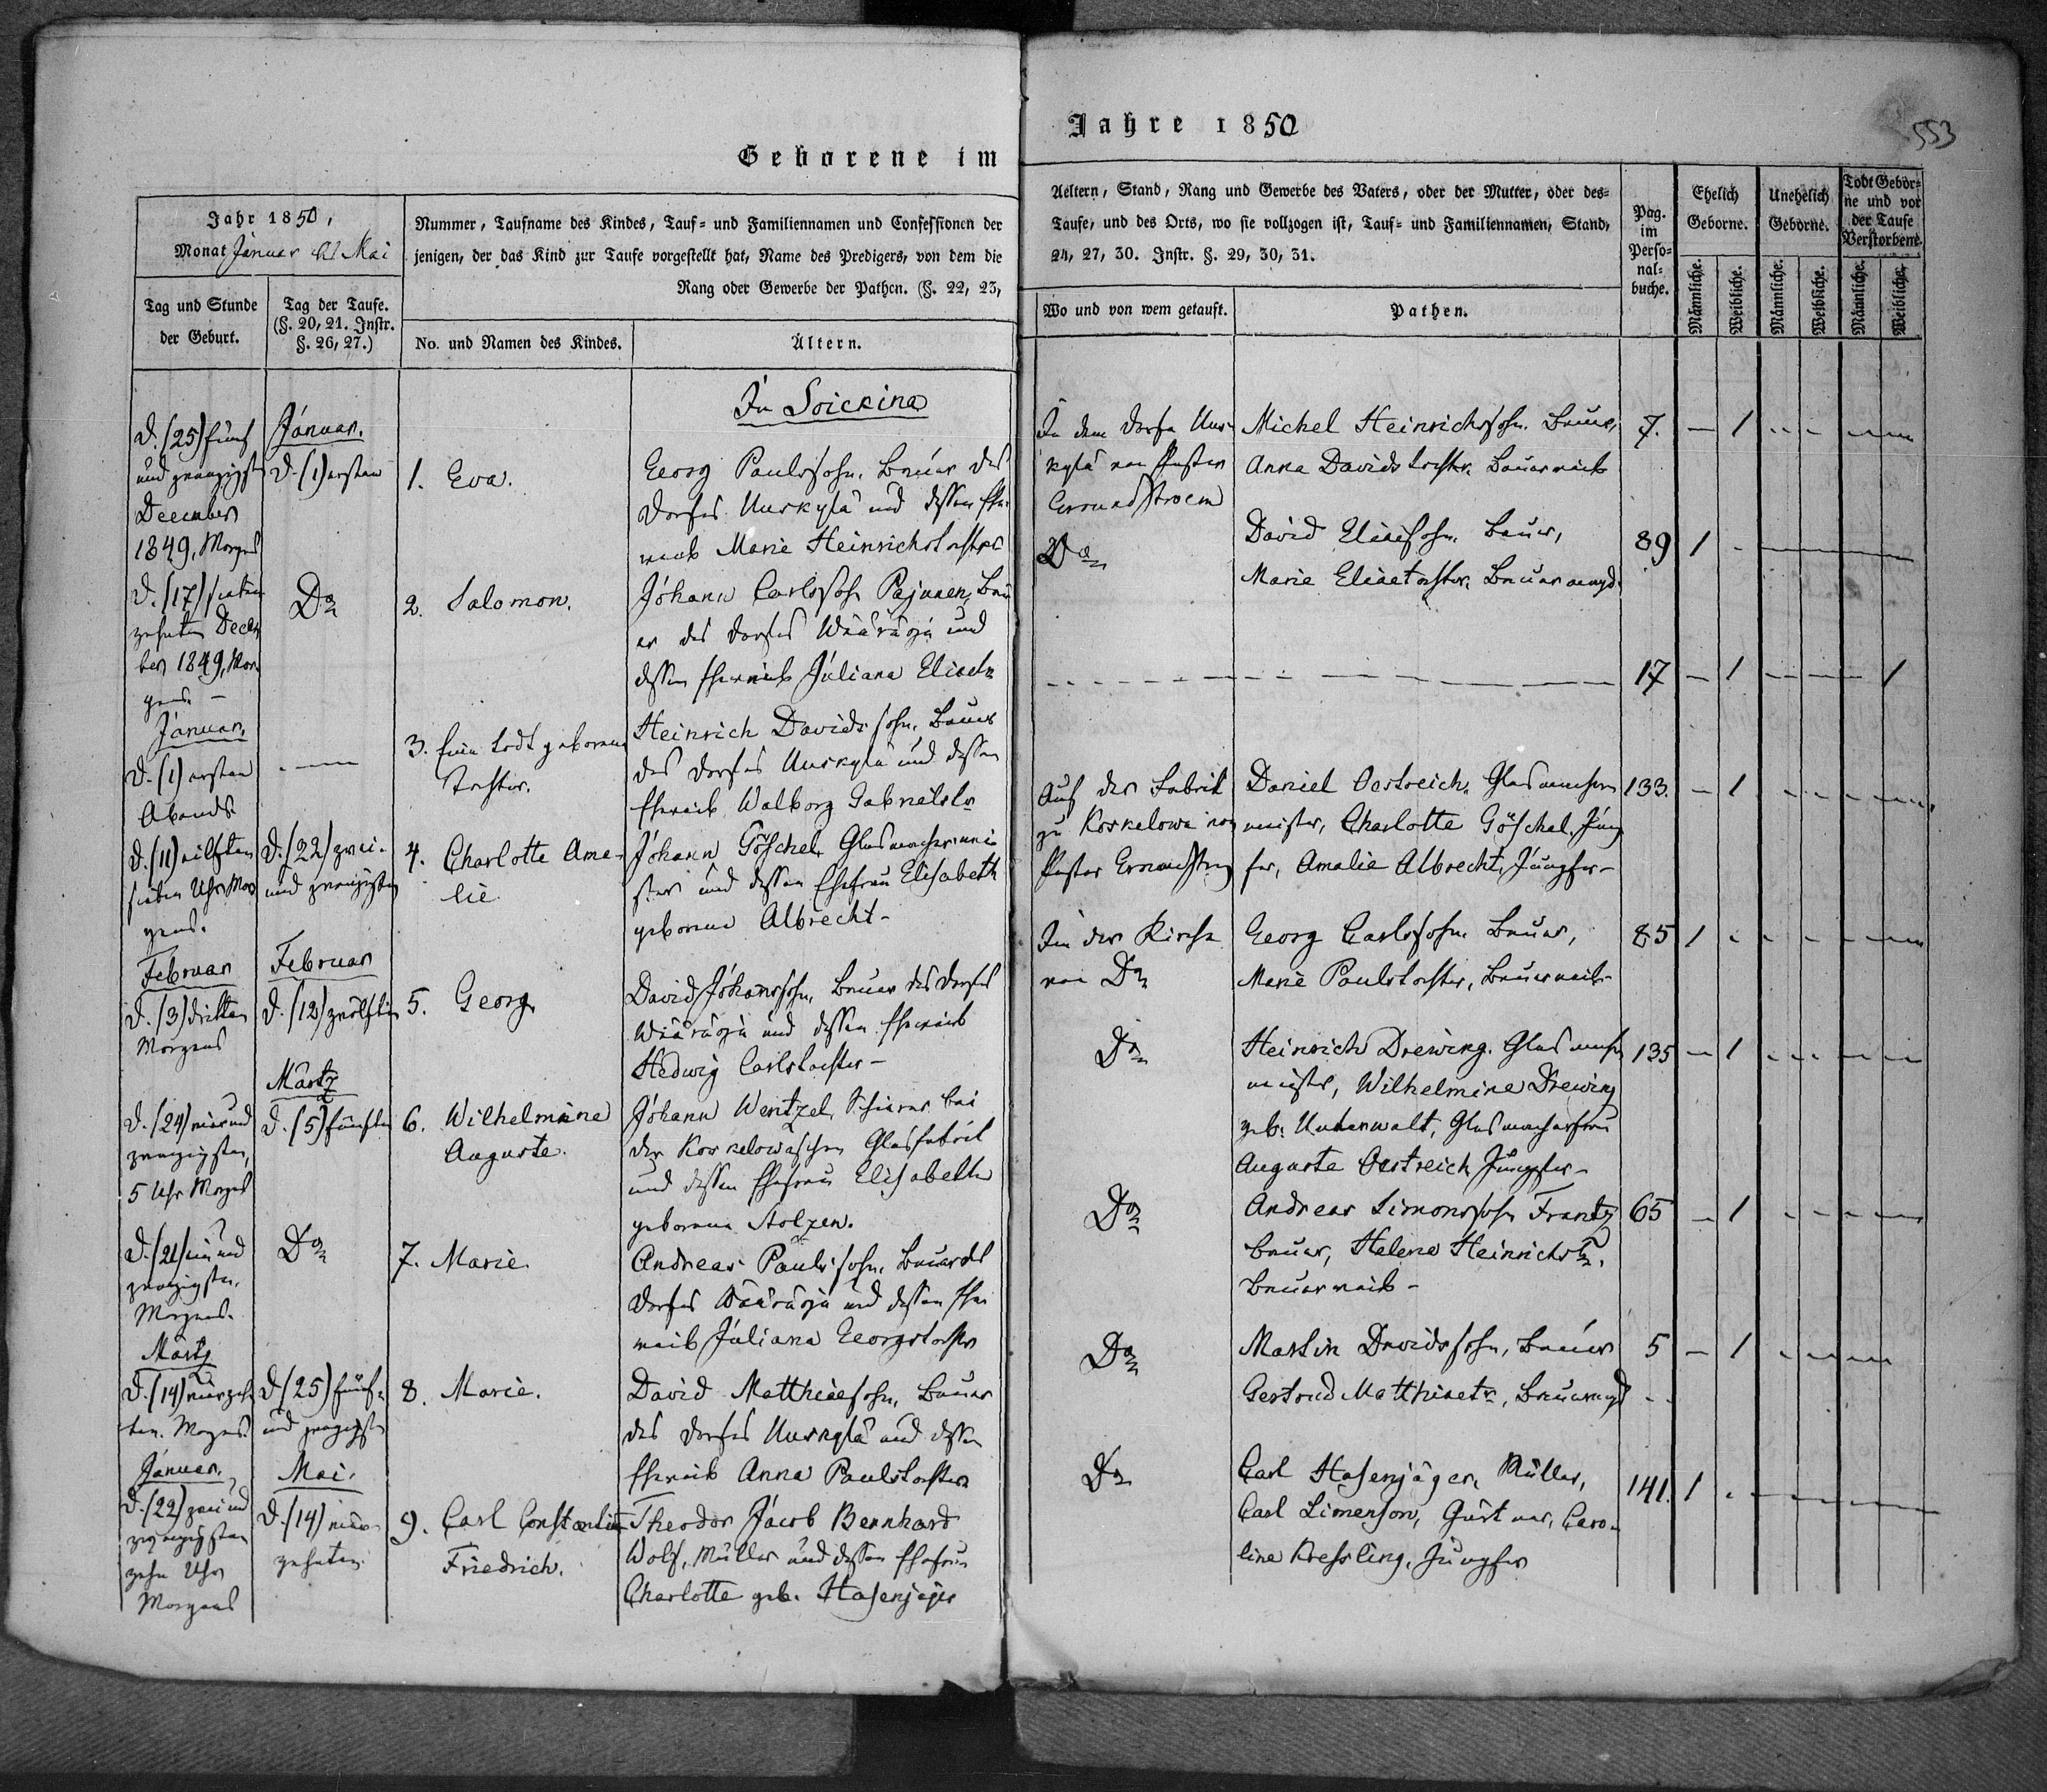 Geborene im
Jahre 1850
553
Jahr 1850,
Monat Januar bis Mai
Nummer, Taufname des Kindes, Tauf- und Familiennamen und Confessionen der
jenigen, der das Kind zur Taufe vorgestellt hat, Name des Predigers, von dem die
Rang oder Gewerbe der Pathen. (§. 22, 23,
Tag und Stunde
der Geburt.
Tag der Taufe.
(§. 20, 21. Instr.
§. 26, 27.)
No. und Namen des Kindes.
Ältern.
Aeltern, Stand, Rang und Gewerbe des Vaters, oder der Mutter, oder des-
Taufe, und des Orts, wo sie vollzogen ist, Tauf- und Familiennamen, Stand,
24, 27, 30. Instr. §. 29, 30, 31.
Wo und von wem getauft.
Pathen.
Pag.
im
Perso-
nal-
buche.
Ehelich
Geborne.
Unehelich
Geborne.
Todt Gebor-
ne und vor
der Taufe
Verstorbene.
Männliche.
Weibliche.
Männliche.
Weibliche.
Männliche.
Weibliche.
In Soickina
d. (25) fünf
und zwanzigst
December
1849, Morgens
Januar.
d. (1) ersten
1. Eva.
Georg Paulssohn, Bauer des
Dorfes Uuskylä und dessen Ehe
weib Marie Heinrichstochter
In dem Dorfe Uus-
kylä von Pastor
Michel Heinrichssohn, Bauer,
Anna Davidstochter, Bauerweib
7. — 1
d. (17) sieben
zehnten Decem
ber 1849, Mor
gens. —
Do
2. Salomon.
Johann Carlssohn Pajunen, Bau
er des Dorfes Wääräoja und
dessen Eheweib Juliana Eliaetr
Do
David Eliaesohn, Bauer,
Marie Eliaetochter, Bauermagd.
89 1
Januar.
d. (1) ersten
Abends
3. Eine todt geborene
Tochter.
Heinrich Davidssohn, Bauer
des Dorfes Uuskylä und dessen
Eheweib Walborg Gabrielstr
17 — 1 1
d. (11) eilften
sieben Uhr Mor
gens.
d. (22) zwei-
und zwanzigsten
4. Charlotte Ama-
lie
Johann Göschel, Glasmachermei-
ster und dessen Ehefrau Elisabeth
geborene Albrecht -
Auf der Fabrik
zu Koskelowa von
Pastor
Daniel Oestreich, Glasmacher
meister, Charlotte Göschel, Jung
fer, Amalie Albrecht, Jungfer -
133. — 1
Februar
d. (3) dritten
Morgens
Februar
d. (12) zwölften
5. Georg
David Johanssohn, Bauer des Dorfes
Wääräoja und dessen Eheweib
Hedwig Carlstochter -
In der Kirche
von Do
Georg Carlssohn, Bauer,
Marie Paulstochter, Bauerweib -
85 1
d. (24) vier und
zwanzigsten,
5 Uhr Morgens
Märtz
d. (5) fünften
6. Wilhelmine
Auguste.
Johann Wentzel, Schürer bei
der Koskelowaschen Glasfabrik
und dessen Ehefrau Elisabeth
geborene Stolzen.
Do
Heinrich Drewing, Glasmacher
meister, Wilhelmine Drewing
geb. Unterwalt, Glasmacherfrau
Auguste Oestreich Jungfer -
135 — 1
d. (21) ein und
zwanzigsten,
Morgens.
Do
7. Marie.
Andreas Paulssohn, Bauer des
Dorfes Wääräoja und dessen Ehe
weib Juliana Georgstochter
Do
Andreas Simonssohn Frantz
Bauer, Helene Heinrichstr,
Bauerweib -
65 — 1
Märtz
d. (14) vierzehn
ten. Morgens.
d (25) fünf-
und zwanzigsten
8. Marie.
David Matthiaesohn, Bauer
des Dorfes Uuskylä und dessen
Eheweib Anna Paulstochter
Do
Martin Davidssohn, Bauer
Gertrud Matthiaetr, Bauermagd
5 — 1
Januar.
d. (22) zwei und
zwanzigsten
zehn Uhr
Morgens
Mai.
d. (14) vier-
zehnten
9. Carl Constantin
Friedrich.
Theodor Jacob Bernhard
Wolf, Müller und dessen Ehefrau
Charlotte geb. Hasenjäger
Do
Carl Hasenjäger, Müller,
Carl Simenson, Gärtner, Caro-
line Kressling, Jungfer
141. 1